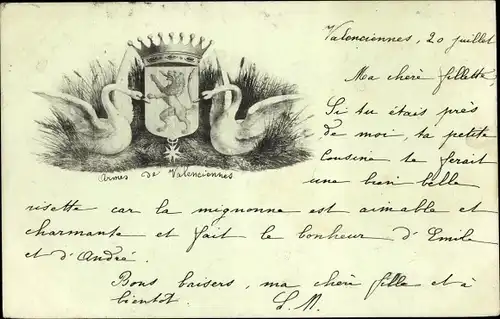 Valenciennes, 20 juillet
Ma chère fillette,
Si tu étais près
de moi, ta petite
cousine te ferait
une bien belle
Armes de Valenciennes
risette car la mignonne est aimable et
charmante et fait le bonheur d'Emile
et d'André.
Bons baisers, ma chère fille et à
bientôt. L. M.